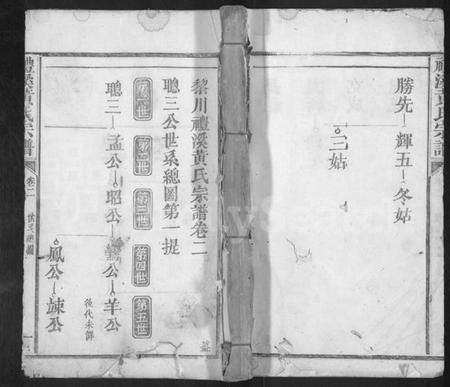 禮溪黃氏宗譜
勝先 輝五 冬姑
三姑
黎川禮溪黃氏宗譜卷二
聰三公世系總圖第一提
第一世 第二世 第三世 第四世 第五世
聰三 孟公 昭公 公 羊公
後代未詳
鳳公 諫公
禮溪黃氏宗譜 卷二